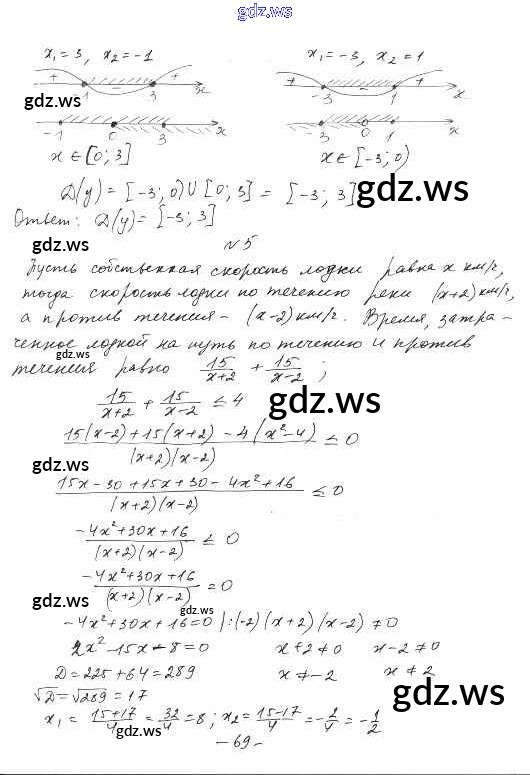 gdz.ws
x₁=3, x₂=-1 x₁=-3, x₂=1
+ - + x + - + x
-1 3 -3 1
gdz.ws gdz.ws
-1 0 3 x -3 0 1 x
x ∈ [0; 3] x ∈ [-3; 0)
D(y) = [-3; 0) ∪ [0; 3] = [-3; 3] gdz.ws
Ответ: D(y) = [-3; 3]
gdz.ws
N 5
Пусть собственная скорость лодки равна x км/ч,
тогда скорость лодки по течению реки (x+2) км/ч,
а против течения - (x-2) км/ч. Время, затра-
ченное лодкой на путь по течению и против
gdz.ws
течения равно 15/(x+2) + 15/(x-2) ;
15/(x+2) + 15/(x-2) ≤ 4 gdz.ws
(15(x-2)+15(x+2)-4(x²-4))/((x+2)(x-2)) ≤ 0
gdz.ws
(15x-30+15x+30-4x²+16)/((x+2)(x-2)) ≤ 0
(-4x²+30x+16)/((x+2)(x-2)) ≤ 0
(-4x²+30x+16)/((x+2)(x-2)) = 0
gdz.ws gdz.ws
-4x²+30x+16=0 |:(-2) (x+2)(x-2) ≠ 0
2x²-15x-8=0 x+2≠0 x-2≠0
D=225+64=289 x≠-2 x≠2
gdz.ws gdz.ws
√D=√289=17
x₁ = (15+17)/4 = 32/4 = 8; x₂ = (15-17)/4 = -2/4 = -1/2
gdz.ws
- 69 -